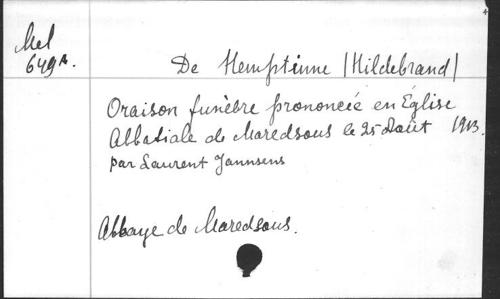 Mel
649A.
De Hemptinne (Hildebrand)
Oraison funèbre prononcée en Église
Abbatiale de Maredsous le 25 Août 1913.
par Laurent Jannsens
Abbaye de Maredsous.